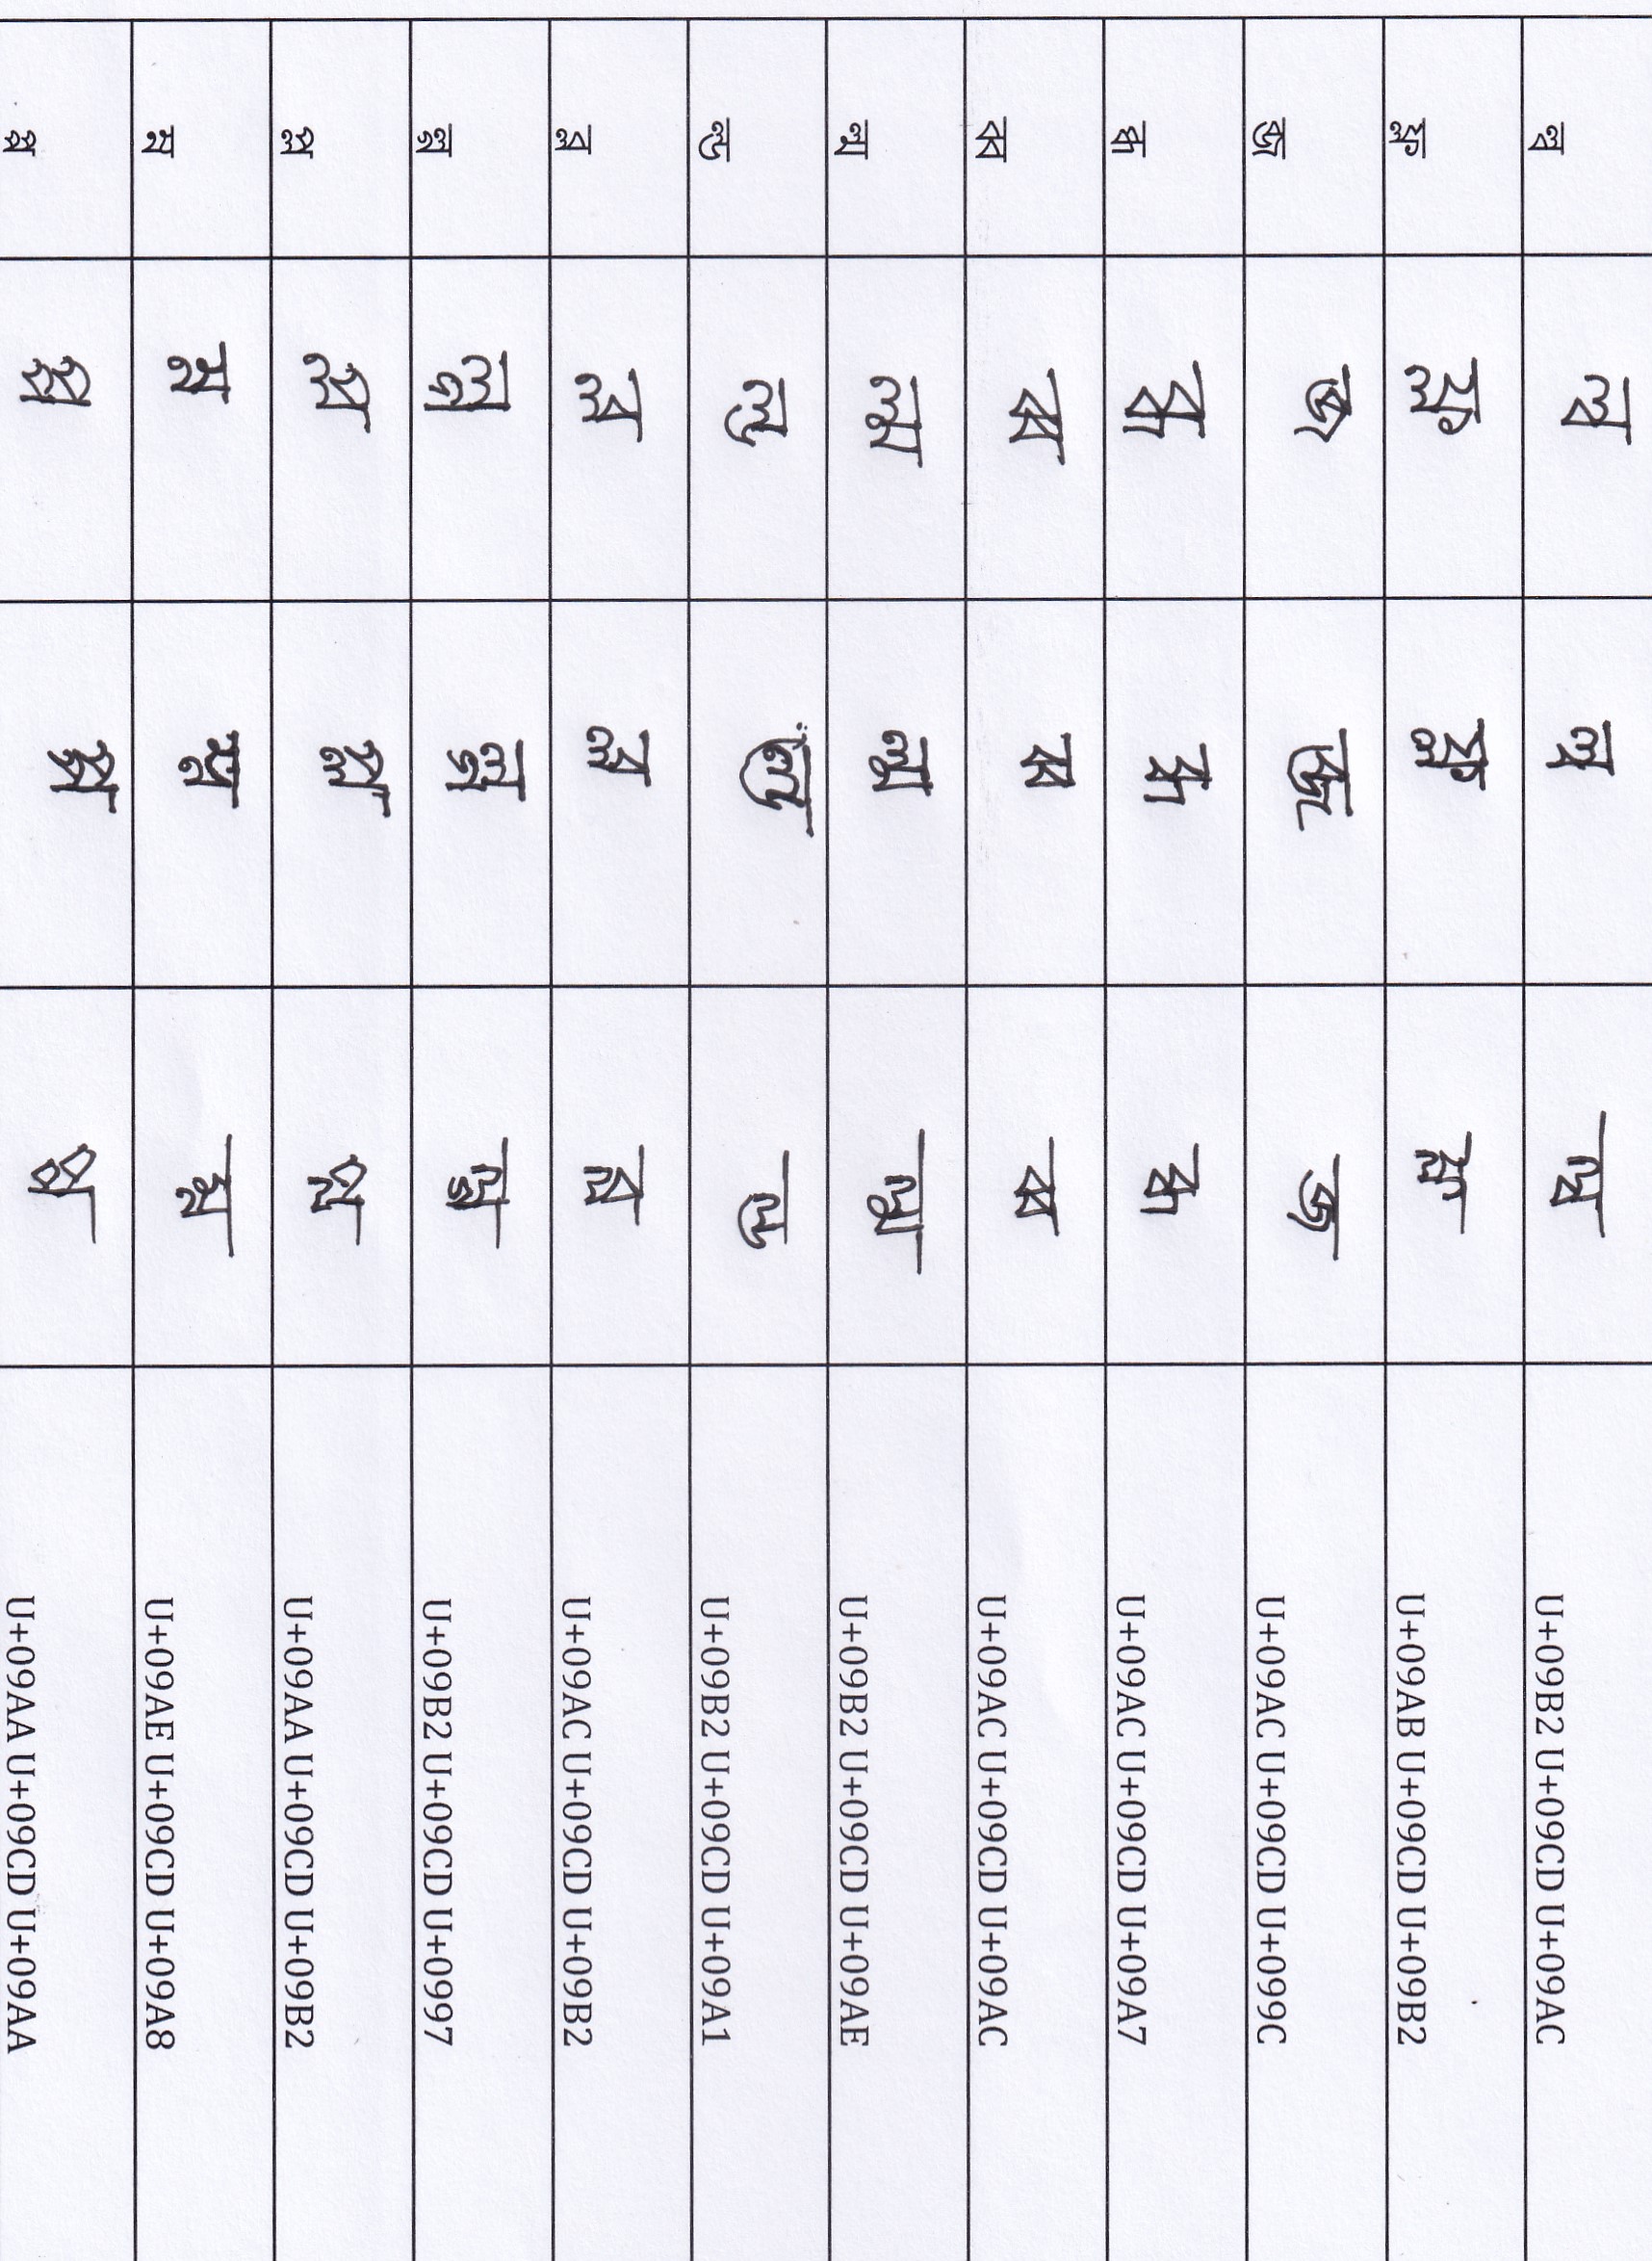 ল্ব ল্ব ল্ব ল্ব U+09B2 U+09CD U+09AC
ফ্ল ফ্ল ফ্ল ফ্ল U+09AB U+09CD U+09B2
ব্জ ব্জ ব্জ ব্জ U+09AC U+09CD U+099C
ব্ধ ব্ধ ব্ধ ব্ধ U+09AC U+09CD U+09A7
ব্ব ব্ব ব্ব ব্ব U+09AC U+09CD U+09AC
ল্ম ল্ম ল্ম ল্ম U+09B2 U+09CD U+09AE
ল্ড ল্ড ল্ড ল্ড U+09B2 U+09CD U+09A1
ব্ল ব্ল ব্ল ব্ল U+09AC U+09CD U+09B2
ল্গ ল্গ ল্গ ল্গ U+09B2 U+09CD U+0997
প্ল প্ল প্ল প্ল U+09AA U+09CD U+09B2
ম্ন ম্ন ম্ন ম্ন U+09AE U+09CD U+09A8
প্প প্প প্প প্প U+09AA U+09CD U+09AA